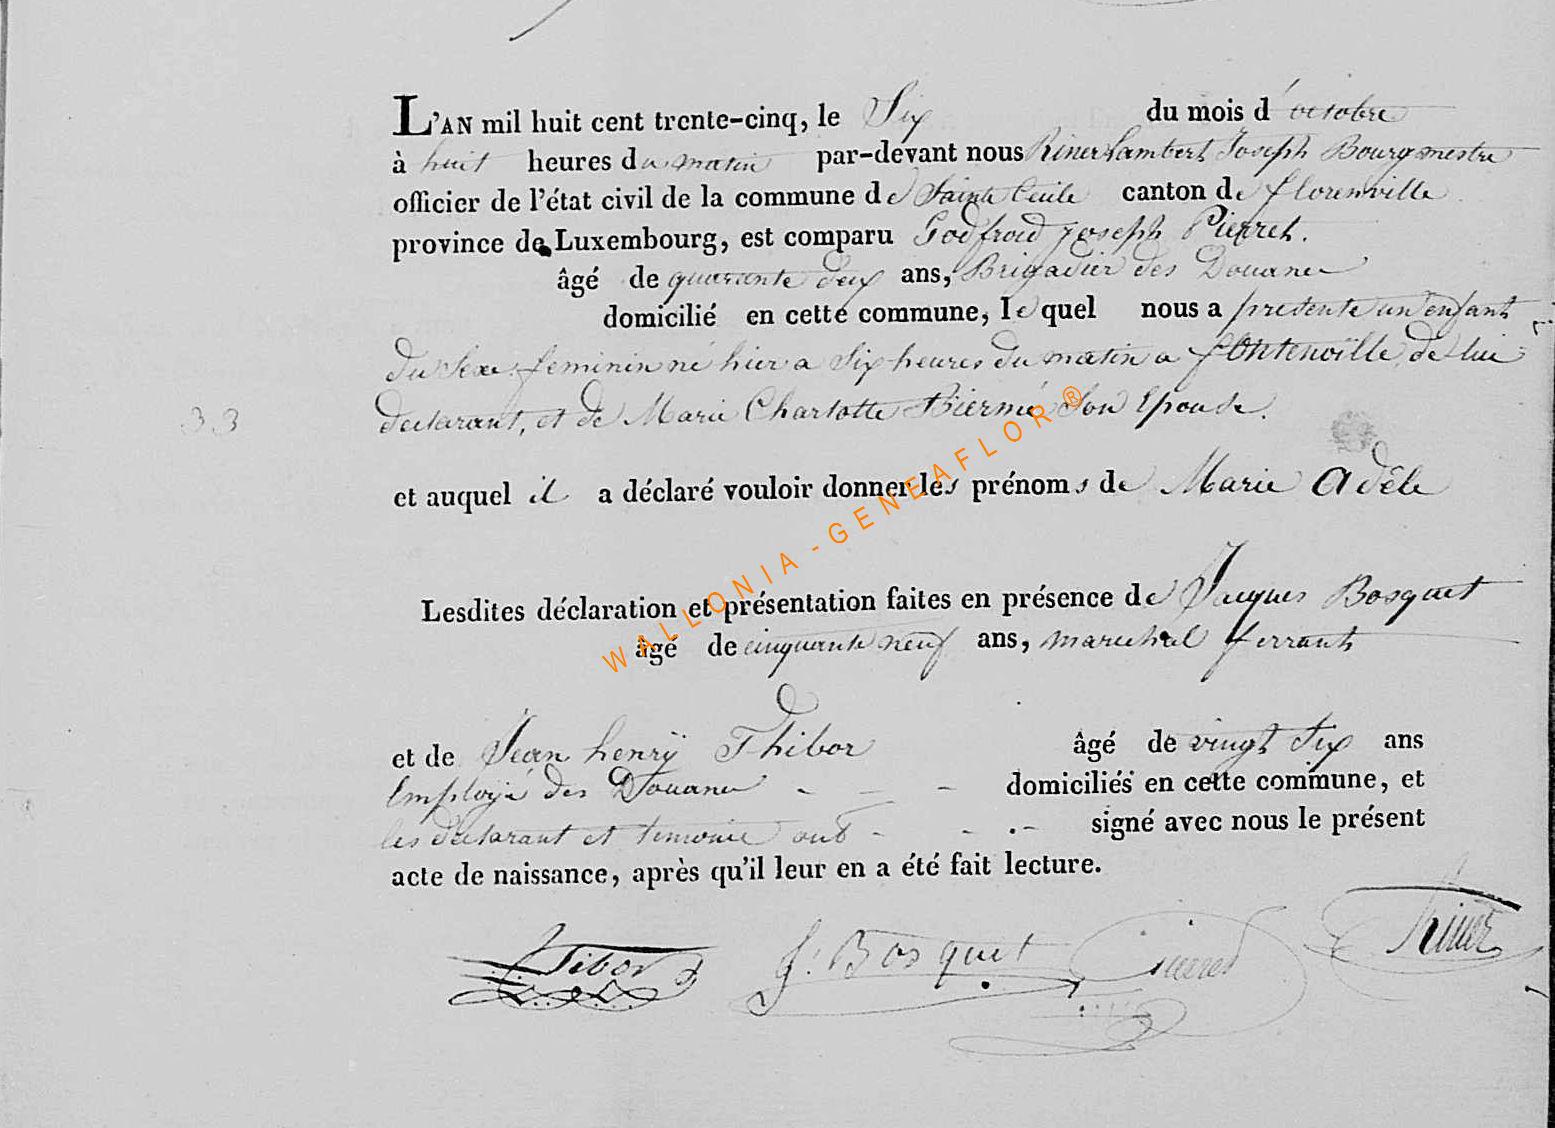 L'AN mil huit cent trente-cinq, le Six du mois d'octobre
à huit heures du matin par-devant nous Riner Lambert Joseph Bourgmestre
officier de l'état civil de la commune de Sainte Cecile canton de florenville
province de Luxembourg, est comparu Godfroid Joseph Pierret.
âgé de quarante deux ans, Brigadier des Douanes
domicilié en cette commune, lequel nous a presente un enfant
du Sexe feminin né hier a Six heures du matin a fontenoille de lui
declarant, et de Marie Charlotte Biermé Son Epouse.
33
et auquel il a déclaré vouloir donner les prénoms de Marie Adèle
Lesdites déclaration et présentation faites en présence de Jacques Bosquet
âgé de cinquante neuf ans, marechal ferrant
et de Jean henrÿ Thibor âgé de vingt Six ans
Employé des Douanes - - - domiciliés en cette commune, et
les declarant et temoins ont - - - signé avec nous le présent
acte de naissance, après qu'il leur en a été fait lecture.
Tibor J. Bosquet Pierret Riner
WALLONIA-GENEAFLOR®